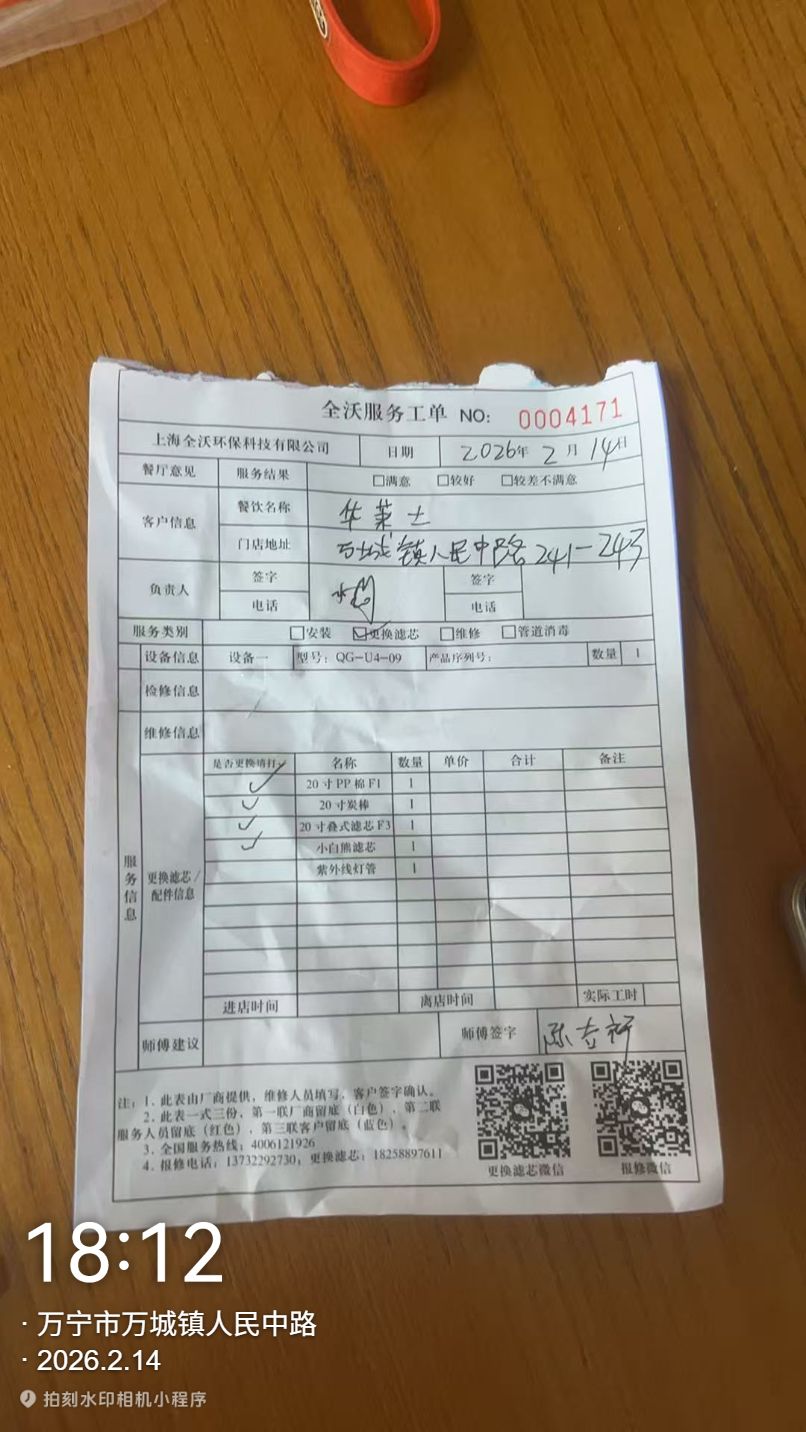 全沃服务工单 NO: 0004171
上海全沃环保科技有限公司 日期 2026年 2 月 14日
餐厅意见 服务结果 □满意 □较好 □较差不满意
客户信息 餐饮名称 华莱士
门店地址 万城镇人民中路241-243
负责人 签字 签字
电话 电话
服务类别 □安装 ☑更换滤芯 □维修 □管道消毒
设备信息 设备一 型号：QG-U4-09 产品序列号： 数量 1
检修信息
维修信息
服务信息
更换滤芯/配件信息
是否更换请打✓ 名称 数量 单价 合计 备注
✓ 20寸PP棉F1 1
✓ 20寸炭棒 1
✓ 20寸叠式滤芯F3 1
✓ 小白熊滤芯 1
紫外线灯管 1
进店时间 离店时间 实际工时
师傅建议 师傅签字
注：1. 此表由厂商提供，维修人员填写，客户签字确认。
2. 此表一式三份，第一联厂商留底（白色），第二联
服务人员留底（红色），第三联客户留底（蓝色）。
3. 全国服务热线：4006121926
4. 报修电话：13732292730，更换滤芯：18258897611
更换滤芯微信 报修微信
18:12
· 万宁市万城镇人民中路
· 2026.2.14
拍刻水印相机小程序